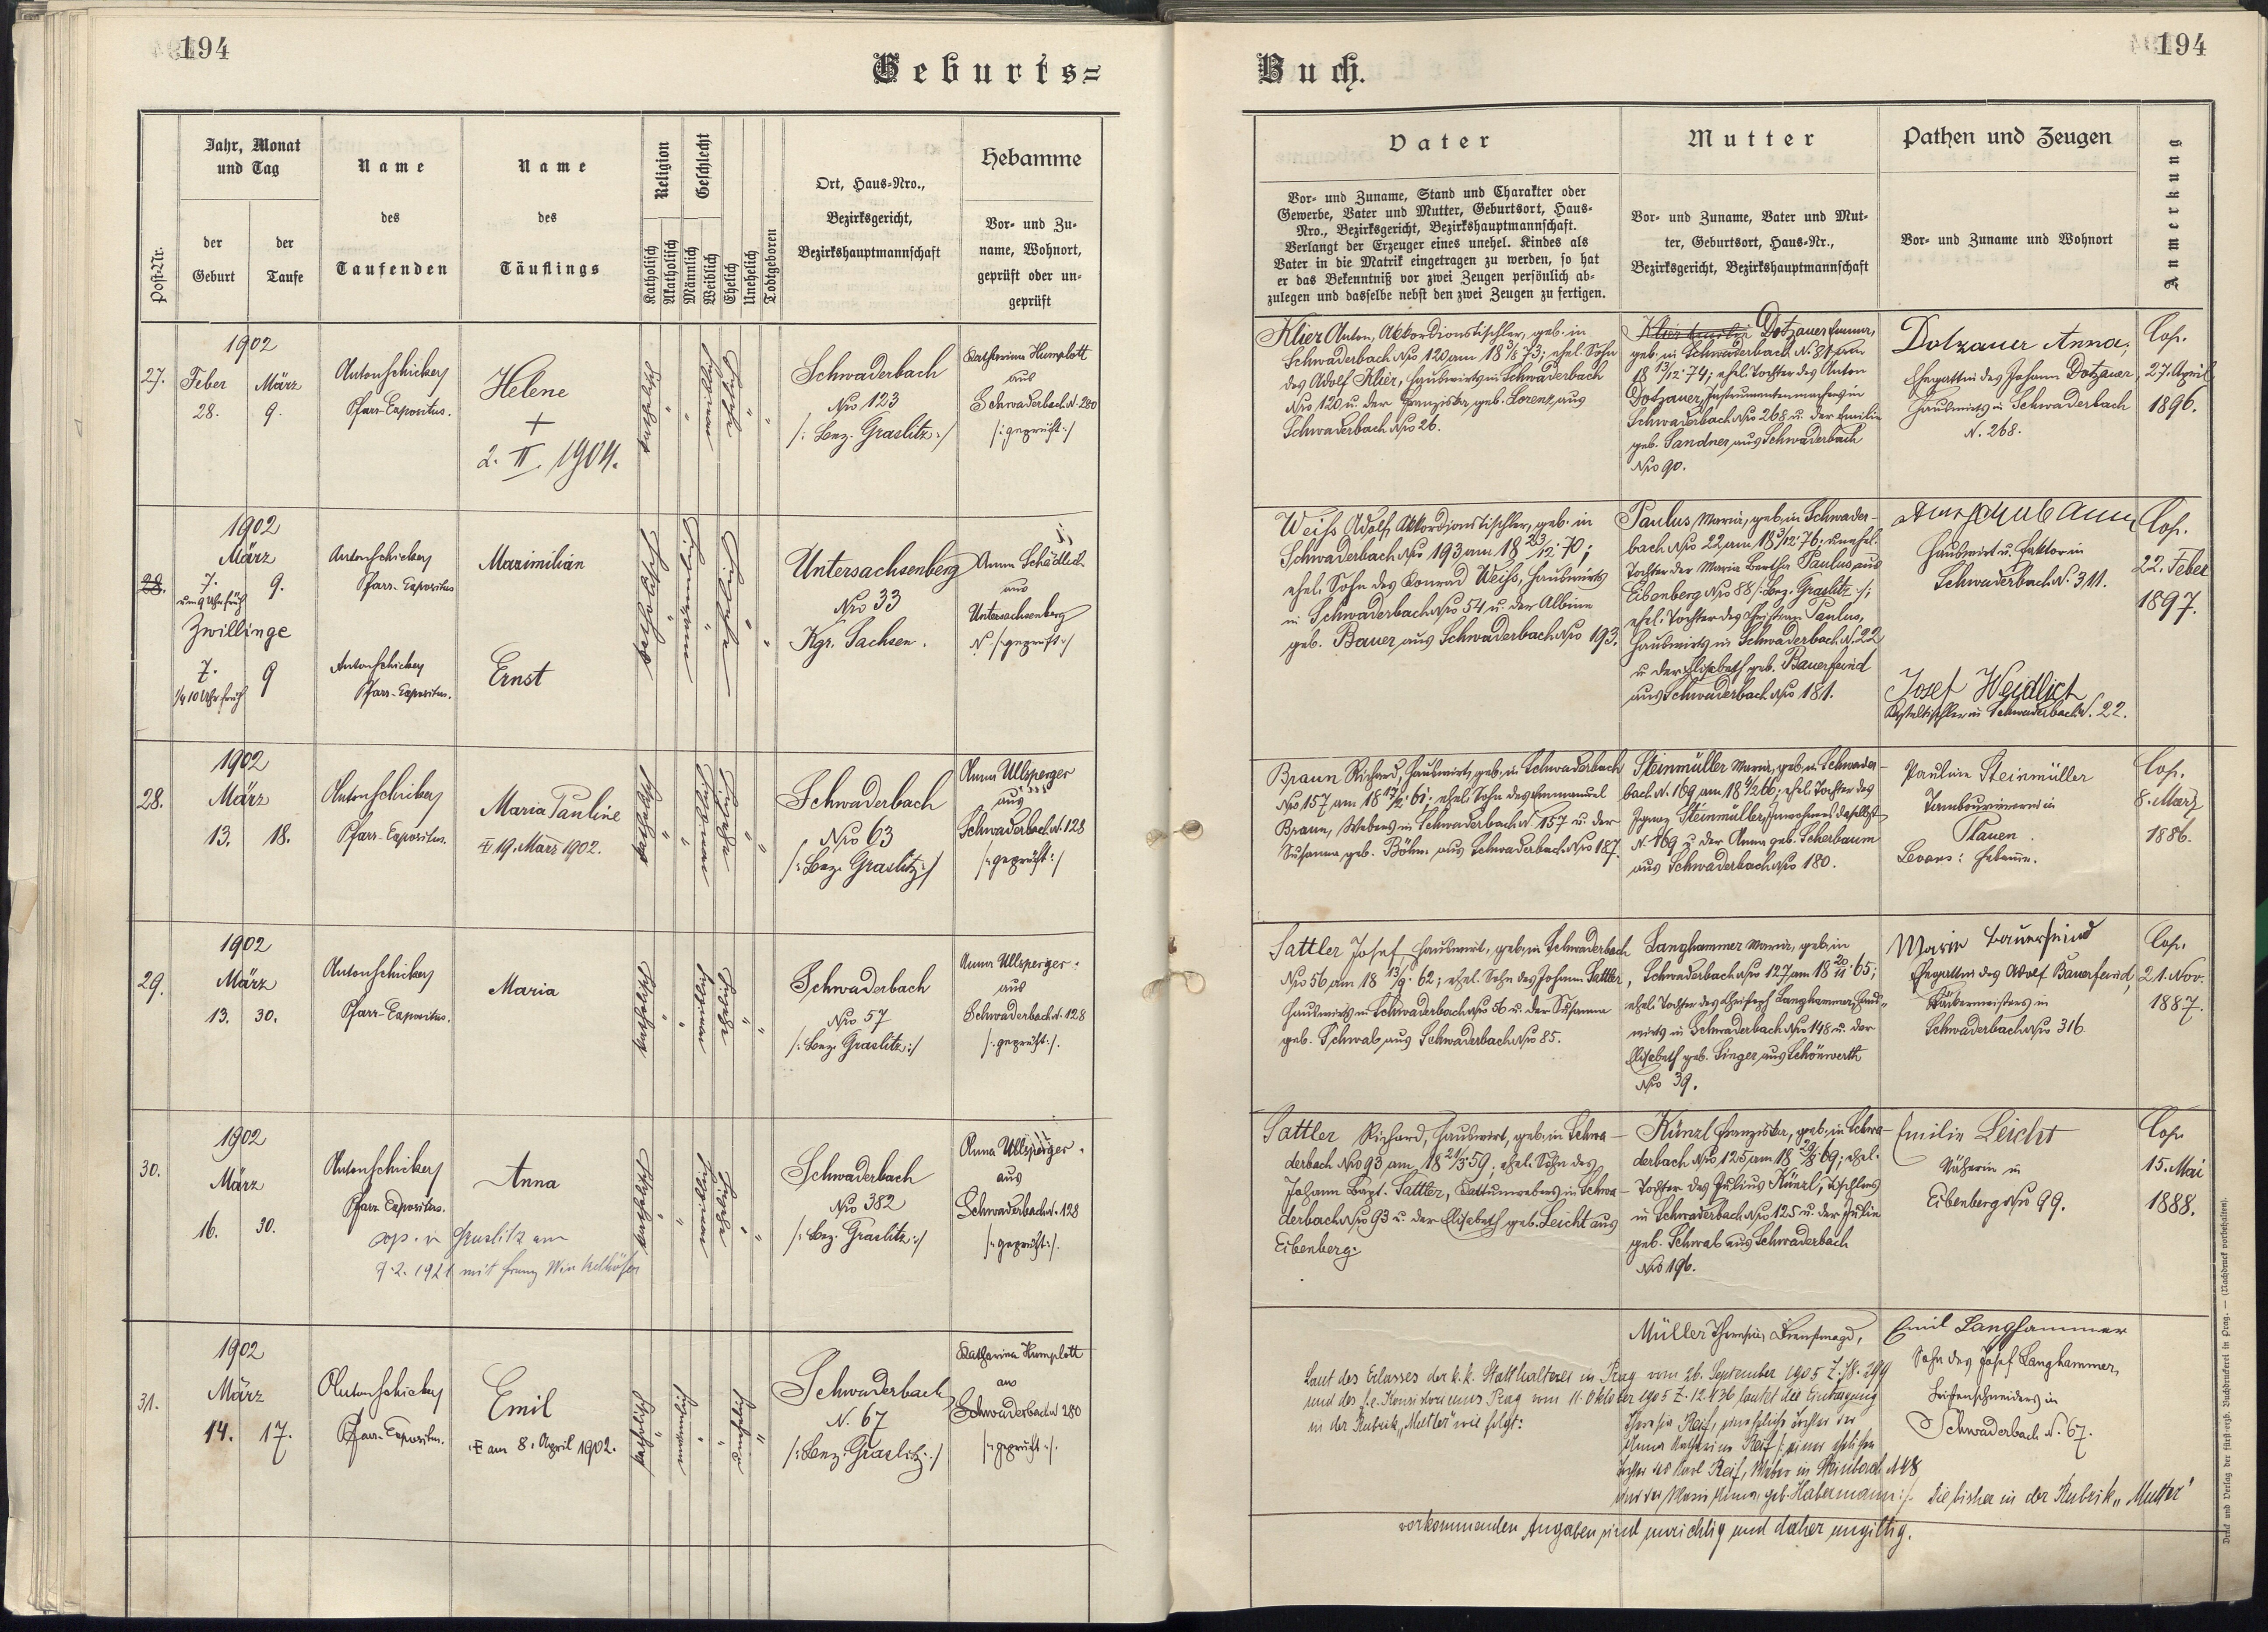 194
Geburts=
Post-Nr.
Jahr, Monat
und Tag
der
Geburt
der
Taufe
Name
des
Taufenden
Name
des
Täuflings
Religion
Katholisch
Akatholisch
Geschlecht
Männlich
Weiblich
Ehelich
Unehelich
Todtgeboren
Ort, Haus-Nro.,
Bezirksgericht,
Bezirkshauptmannschaft
Hebamme
Vor- und Zu-
name, Wohnort,
geprüft oder un-
geprüft
1902
27. Feber März
28. 9.
Anton Schickery
Pfarr-Expositus.
Helene
+
2. II. 1904.
Schwaderbach
Nro 123
/: Bez. Graslitz :/
Katharina Humplott
aus
Schwaderbach N. 280
/: geprüft :/
1902
März
28. 7. 9.
um 9 Uhr früh
Zwillinge
7. 9
1/4 10 Uhr früh
Anton Schickery
Pfarr-Expositus
Anton Schickery
Pfarr-Expositus.
Maximilian
Ernst
Untersachsenberg
Nro 33
Kgr. Sachsen.
Anna Schädlich
aus
Untersachsenberg
N. /: geprüft :/
1902
28. März
13. 18.
Anton Schickery
Pfarr-Expositus.
Maria Pauline
19. März 1902.
Schwaderbach
Nro 63
/: Bez. Graslitz :/
Anna Ullsperger
aus
Schwaderbach N. 128
/: geprüft :/
1902
29. März
13. 30.
Anton Schickery
Pfarr-Expositus.
Maria
Schwaderbach
Nro 57
/: Bez. Graslitz :/
Anna Ullsperger
aus
Schwaderbach N. 128
/: geprüft :/.
1902
30. März
16. 30.
Anton Schickery
Pfarr-Expositus.
Anna
cop. in Graslitz am
9.2. 1921 mit Franz Winkelhöfer
Schwaderbach
Nro 382
/: Bez. Graslitz :/
Anna Ullsperger
aus
Schwaderbach N. 128
/: geprüft :/.
1902
31. März
14. 17.
Anton Schickery
Pfarr-Expositus.
Emil
am 8. April 1902.
Schwaderbach
N. 67
/: Bez. Graslitz :/
Katharina Humplott
aus
Schwaderbach N 280
/: geprüft :/.
194
Buch.
Vater
Vor- und Zuname, Stand und Charakter oder
Gewerbe, Vater und Mutter, Geburtsort, Haus-
Nro., Bezirksgericht, Bezirkshauptmannschaft.
Verlangt der Erzeuger eines unehel. Kindes als
Vater in die Matrik eingetragen zu werden, so hat
er das Bekenntniß vor zwei Zeugen persönlich ab-
zulegen und dasselbe nebst den zwei Zeugen zu fertigen.
Mutter
Vor- und Zuname, Vater und Mut-
ter, Geburtsort, Haus-Nr.,
Bezirksgericht, Bezirkshauptmannschaft
Pathen und Zeugen
Vor- und Zuname und Wohnort
Anmerkung
Klier Anton, Akkordionstischler, geb. in
Schwaderbach Nro 120 am 18 3/8 73; ehel. Sohn
des Adolf Klier, Hauswirts in Schwaderbach
Nro 120 u. der Franziska geb. Lorenz aus
Schwaderbach Nro 26.
Dotzauer Emma,
geb. in Schwaderbach N. 81 am
18 13/12 74; ehel. Tochter des Anton
Dotzauer, Instrumentenmachers in
Schwaderbach Nro 268 u. der Emilie
geb. Sandner aus Schwaderbach
Nro 90.
Dotzauer Anna,
Ehegattin des Johann Dotzauer,
Hauswirts in Schwaderbach
N. 268.
Cop.
27. April
1896.
Weiss Adolf, Akkordionstischler, geb. in
Schwaderbach Nro 193 am 18 23/12 70;
ehel. Sohn des Konrad Weiss, Hauswirts
in Schwaderbach Nro 54 u. der Albine
geb. Bauer aus Schwaderbach Nro 193.
Paulus Maria, geb. in Schwader-
bach Nro 22 am 18 3/12 76; unehel.
Tochter der Maria Bertha Paulus aus
Eibenberg Nro 88 /: Bez. Graslitz :/;
ehel. Tochter des Christian Paulus,
Hauswirts in Schwaderbach N. 22
u. der Elisabeth geb. Bauerfeind
aus Schwaderbach Nro 181.
Hauswirt u. Faktor in
Schwaderbach N. 311.
Josef Weidlich
in Schwaderbach N. 22.
Cop.
22. Feber
1897.
Braun Richard, Hauswirt, geb. in Schwaderbach
Nro 157 am 18 17/2 61; ehel. Sohn des Emmanuel
Braun, Webers in Schwaderbach N. 157 u. der
Susanna geb. Böhm aus Schwaderbach Nro 187.
Steinmüller Maria, geb. in Schwader-
bach N. 169 am 18 4/2 66; ehel. Tochter des
Ignaz Steinmüller, Inwohners daselbst
N. 169 u. der Anna geb. Scherbaum
aus Schwaderbach Nro 180.
Pauline Steinmüller
Tambouriererin in
Plauen.
Levans: Hebamme.
Cop.
8. März
1886.
Sattler Josef, Hauswirt, geb. in Schwaderbach
Nro 56 am 18 13/9 62; ehel. Sohn des Johann Sattler,
Hauswirts in Schwaderbach Nro 56 u. der Susanna
geb. Schwab aus Schwaderbach Nro 85.
Langhammer Maria, geb. in
Schwaderbach Nro 127 am 18 20/11 65;
ehel. Tochter des Christoph Langhammer, Haus-
wirts in Schwaderbach Nro 148 u. der
Elisabeth geb. Singer aus Schönwerth
Nro 39.
Marie Bauerfeind
Ehegattin des Adolf Bauerfeind,
Bäckermeisters in
Schwaderbach Nro 316
Cop.
21. Nov.
1887.
Sattler Richard, Hauswirt, geb. in Schwa-
derbach Nro 93 am 18 21/3 59; ehel. Sohn des
Johann Bapt. Sattler, Kattunwebers in Schwa-
derbach Nro 93 u. der Elisabeth geb. Leicht aus
Eibenberg.
Künzl Franziska, geb. in Schwa-
derbach Nro 125 am 18 29/8 69; ehel.
Tochter des Julius Künzl, Tischlers
in Schwaderbach Nro 125 u. der Julie
geb. Schwab aus Schwaderbach
Nro 196.
Emilie Leicht
Näherin in
Eibenberg Nro 99.
Cop.
15. Mai
1888.
Müller Theresia, Dienstmagd,
Laut des Erlasses der k.k. Statthalterei in Prag vom 26. September 1905 Z.
und des f.e. Konsistoriums Prag vom 11. Oktober 1905 Z. 12.436 lautet die Eintragung
in der Rubrik „Mutter" wie folgt:
Theresia Reif, uneheliche Tochter der
Anna Katharina Reif /: einer ehelichen
Tochter des Karl Reif, Weber in N 48
und der Maria Anna, geb. Habermann :/. Die bisher in der Rubrik „Mutter"
vorkommenden Angaben sind unrichtig und daher ungiltig.
Emil Langhammer
Sohn des Josef Langhammer,
in
Schwaderbach N. 67.
Druck und Verlag der fürst-erzb. Buchdruckerei in Prag. — (Nachdruck vorbehalten).